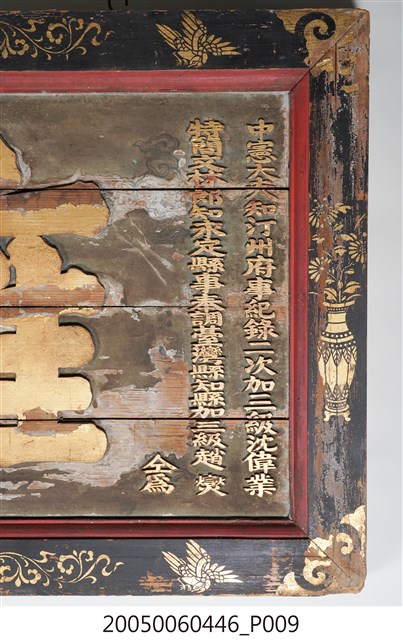 中憲大夫知汀州府事紀錄二次加三級沈偉業
特簡文林郎知永定縣事奉調臺灣縣知縣加三級趙爕
仝為
20050060446_P009